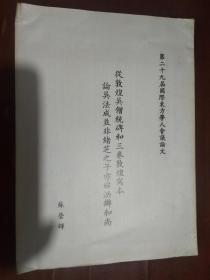 第二十九屆國際東方學人會議論文
從敦煌吳僧統碑和三卷敦煌寫本
論吳法成並非緒芝之子亦非洪辯和尚
蘇瑩輝